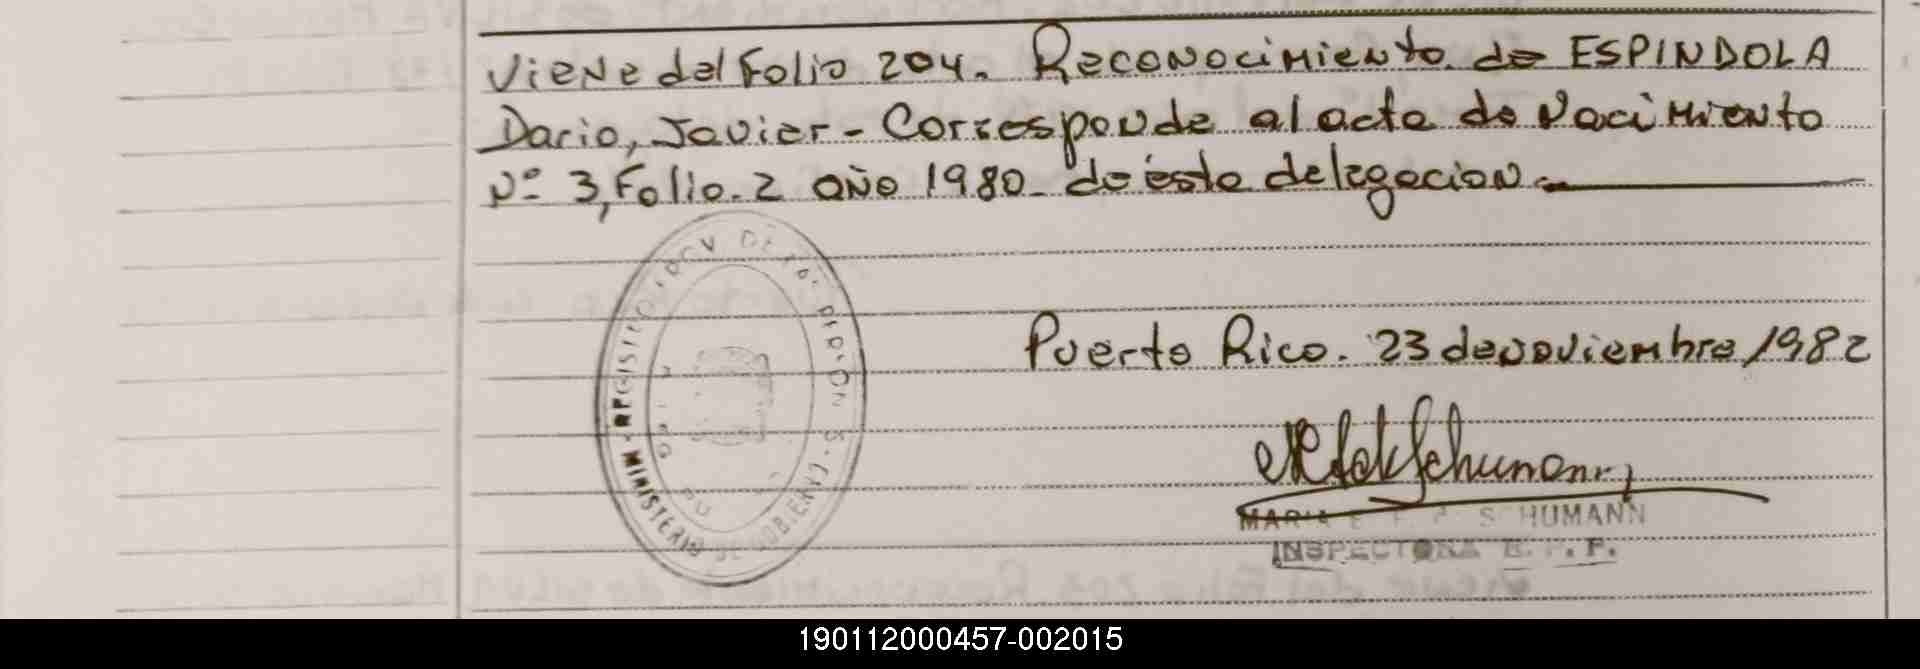 Viene del Folio 204. Reconocimiento de ESPINDOLA
Dario, Javier - Corresponde al acta de Nacimiento
Nº 3, Folio. 2 año 1980 - de ésta delegacion -
Puerto Rico. 23 de noviembre 1982
MARIA E. F. SCHUMANN
INSPECTORA
MINISTERIO DE GOBIERNO
REGISTRO PROV DE LAS PERSONAS
190112000457-002015